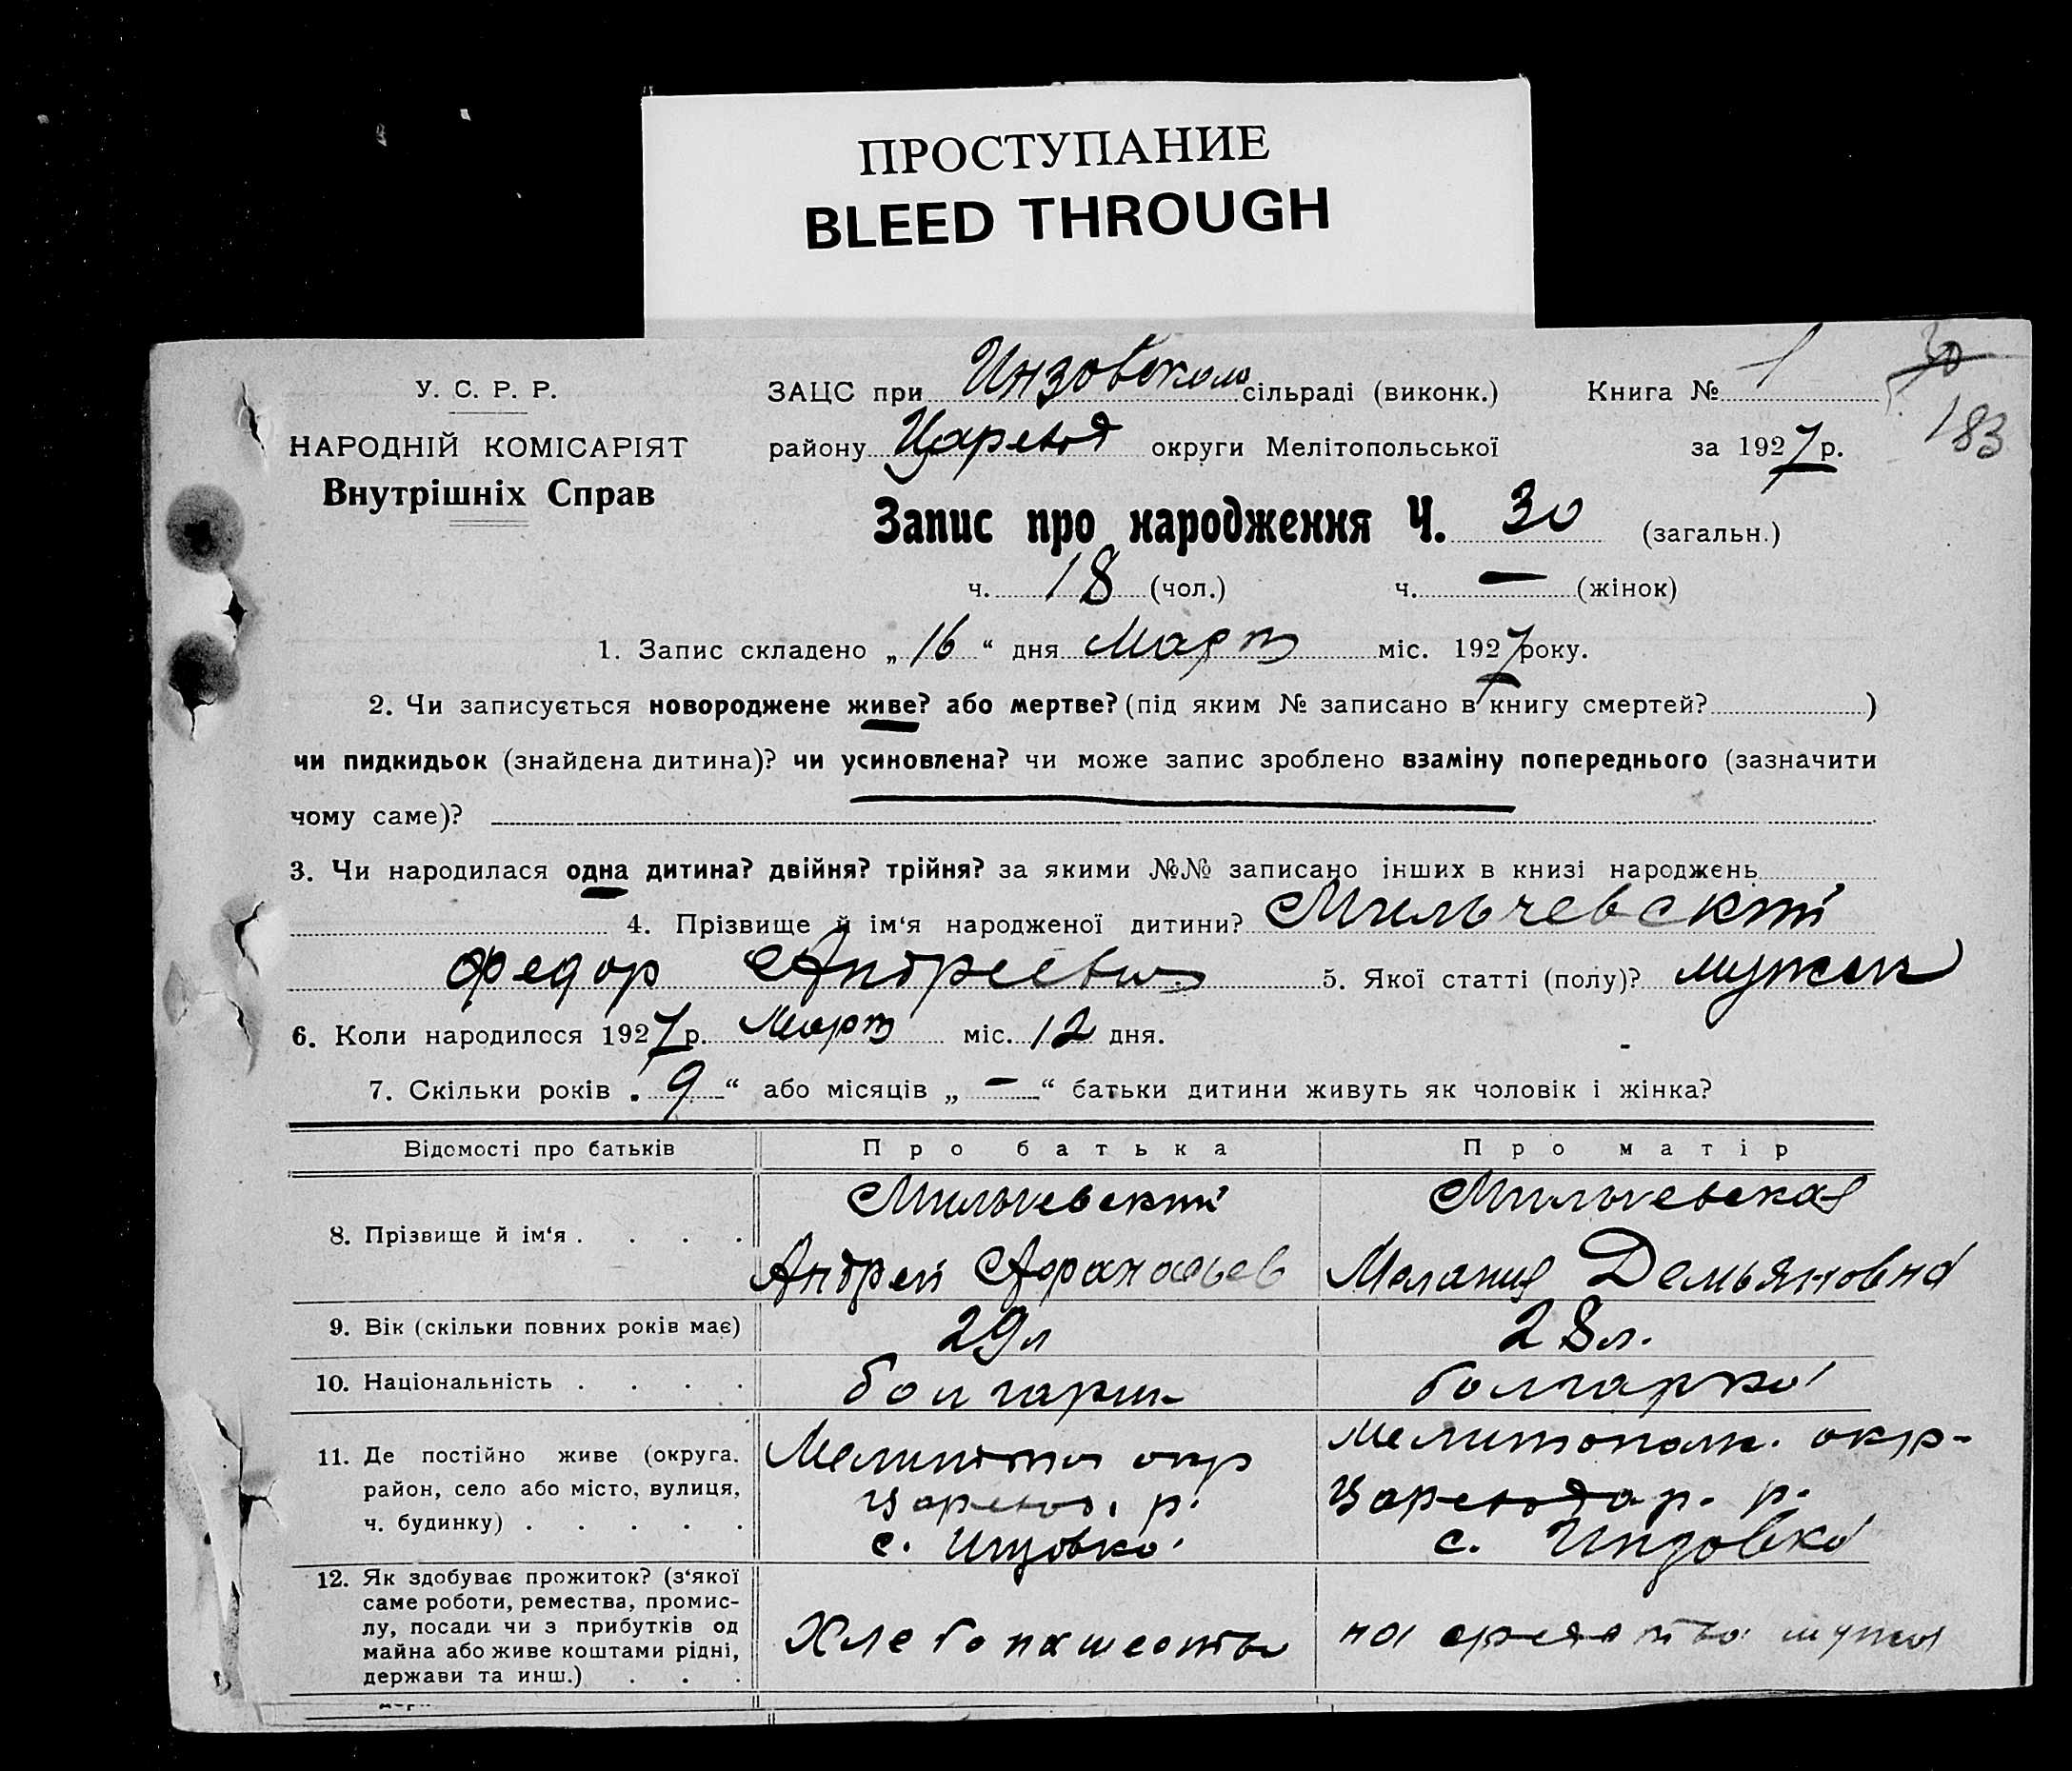 ПРОСТУПАНИЕ
BLEED THROUGH
У. С. Р. Р.
НАРОДНІЙ КОМІСАРІЯТ
Внутрішніх Справ
ЗАЦС при Инзовском сільраді (виконк.) Книга № 1
30
183
району Царевод округи Мелітопольської за 1927 р.
Запис про народження Ч. 30 (загальн.)
ч. 18 (чол.) ч. — (жінок)
1. Запис складено „ 16 “ дня Март міс. 1927 року.
2. Чи записується новороджене живе? або мертве? (під яким № записано в книгу смертей? )
чи пидкидьок (знайдена дитина)? чи усиновлена? чи може запис зроблено взаміну попереднього (зазначити
чому саме)?
3. Чи народилася одна дитина? двійня? трійня? за якими №№ записано інших в книзі народжень
4. Прізвище й ім‘я народженої дитини? Мильчевский
Федор Андреевич 5. Якої статті (полу)? мужск
6. Коли народилося 1927 р. Март міс. 12 дня.
7. Скільки років „ 9 “ або місяців „ — “ батьки дитини живуть як чоловік і жінка?
Відомості про батьків Про батька Про матір
8. Прізвище й ім‘я . . . .
Мильчевский
Андрей Афанасьев
Мильчевская
Мелания Демьяновна
9. Вік (скільки повних років має) 29 л 28 л.
10. Національність . . . . болгарин болгарка
11. Де постійно живе (округа,
район, село або місто, вулиця,
ч. будинку) . . . . .
окр
Царевод. р.
с. Инзовка
Мелитополь. окр-
р.
с. Инзовка
12. Як здобуває прожиток? (з‘якої
саме роботи, ремества, промис-
лу, посади чи з прибутків од
майна або живе коштами рідні,
держави та инш.) . . .
Хлебопашеством
на средства мужа